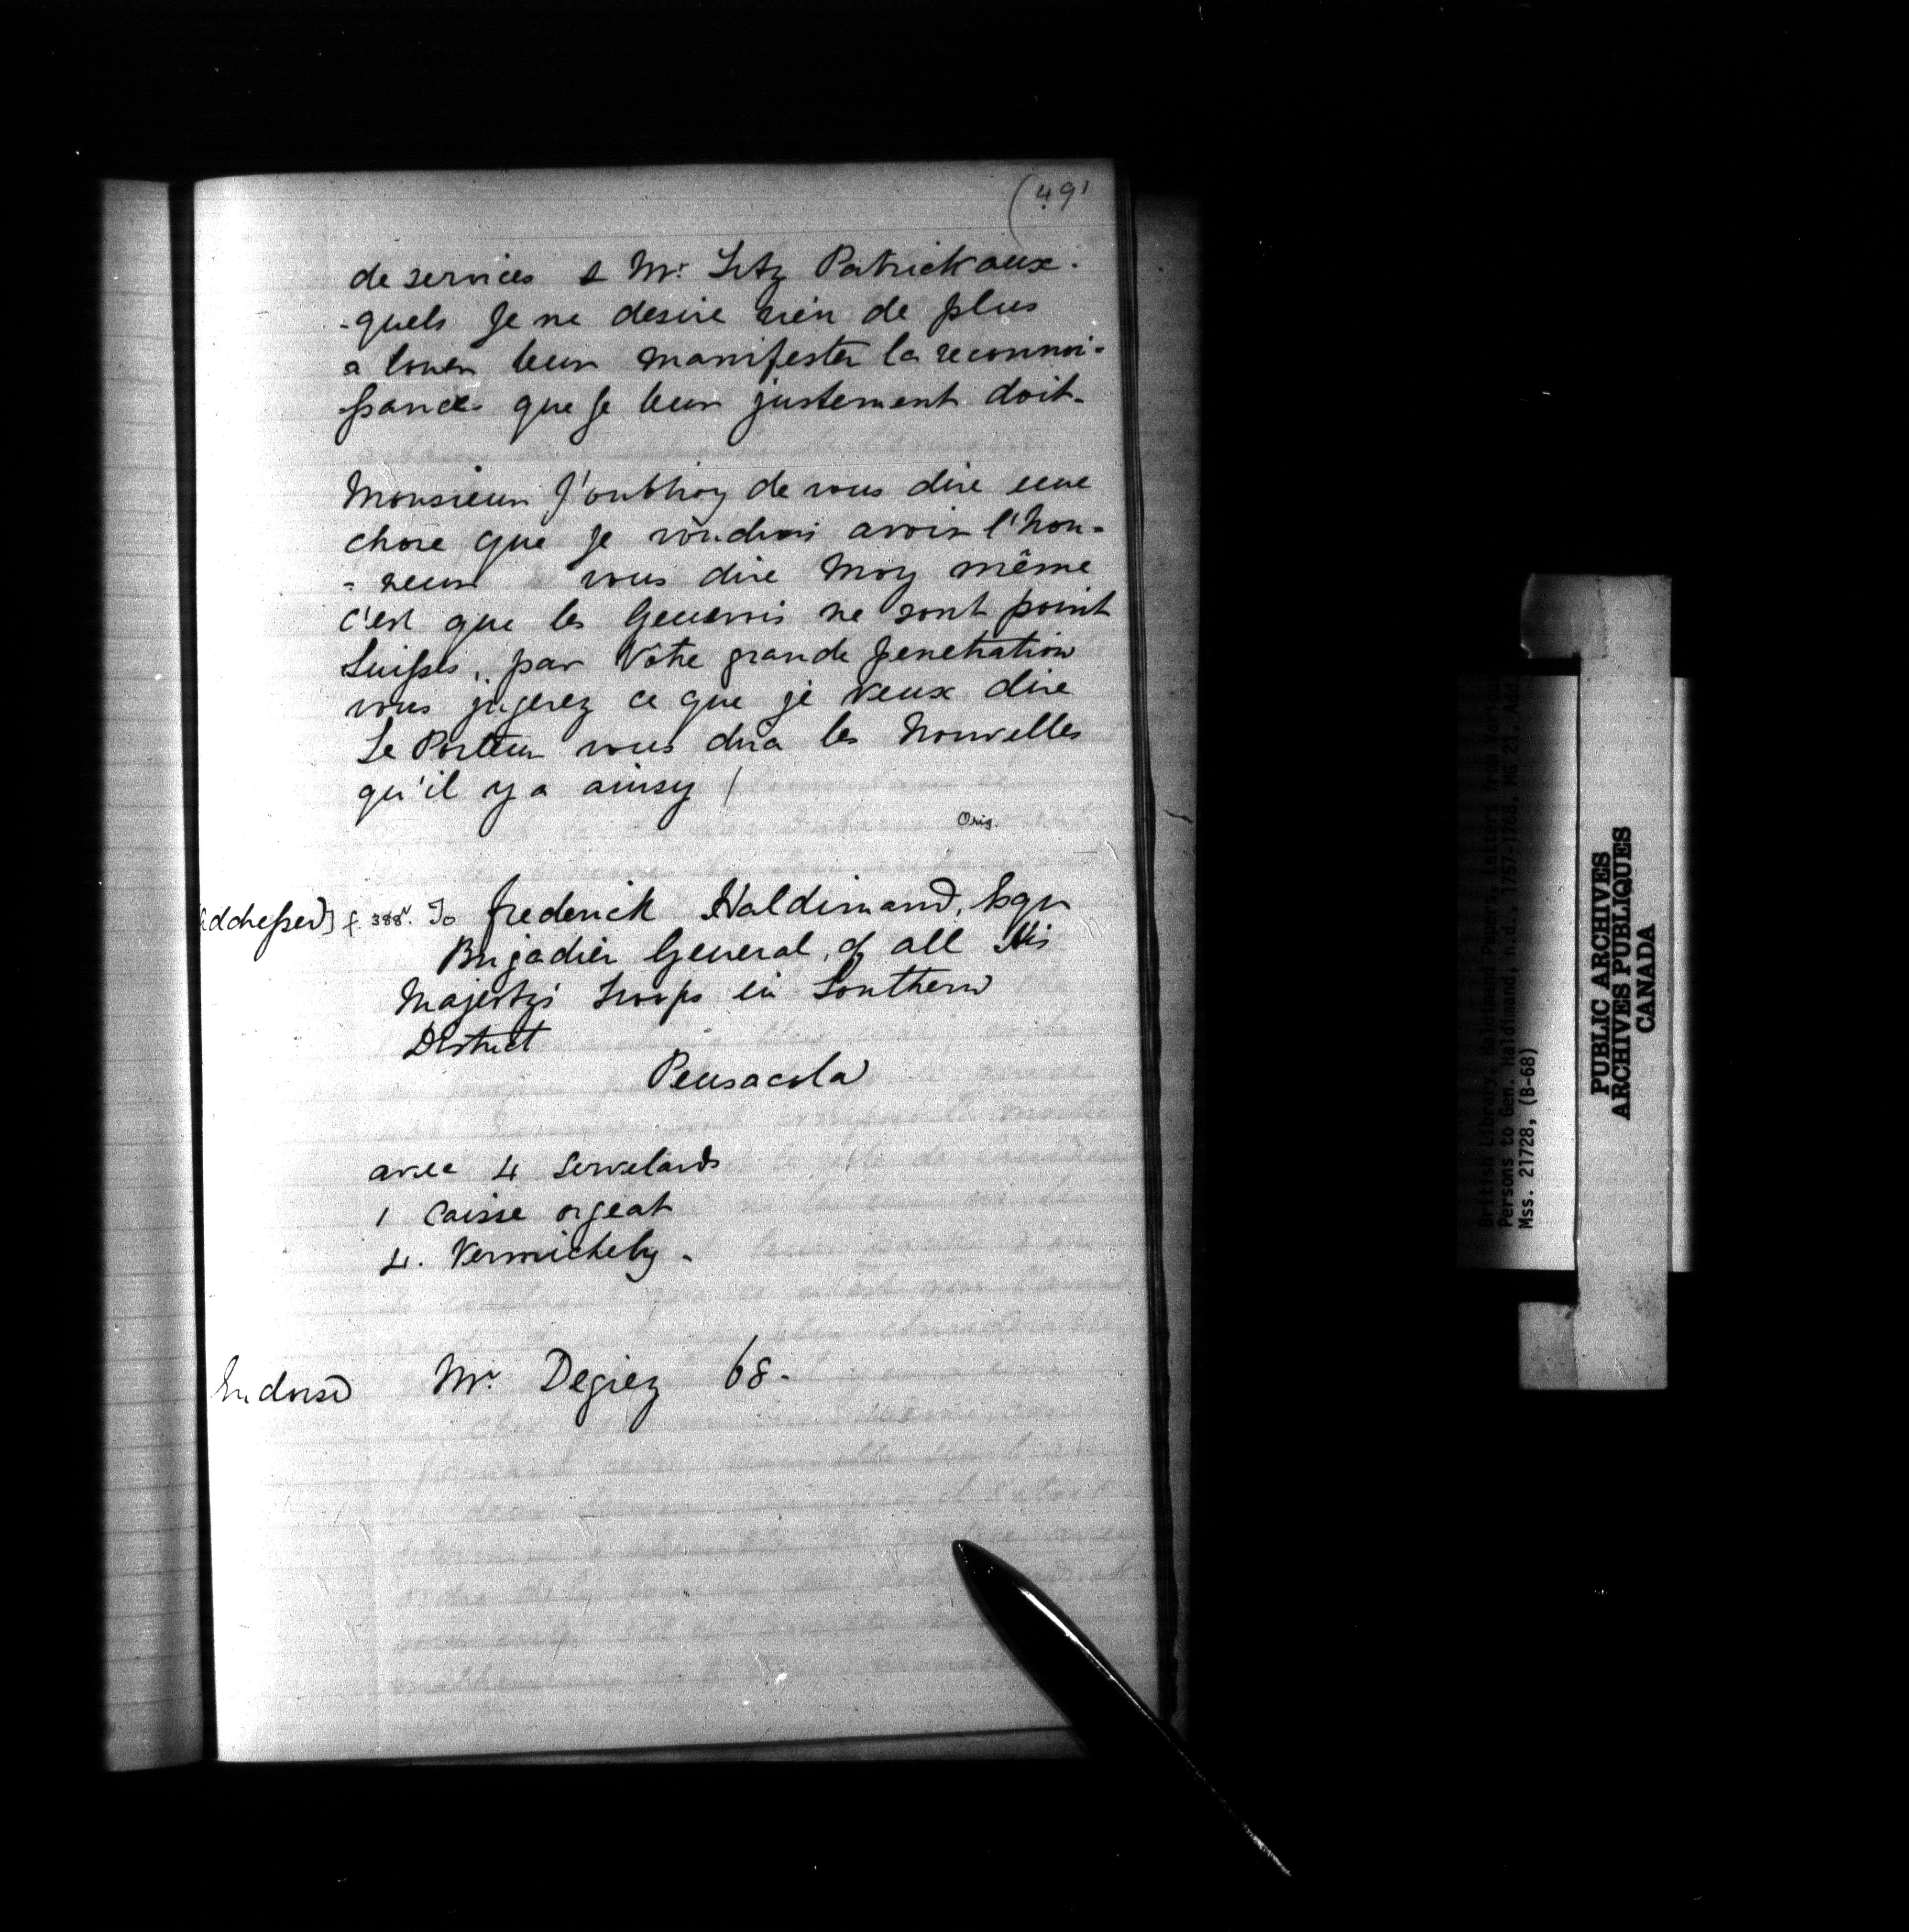 (491
de services & Mr. Fitz Patrick aux-
-quels Je ne desire rien de plus
a leur manifester la reconnoi-
ssance que Je leur justement doit.
Monsieur J'oublioy de vous dire une
chose que je voudrois avoir l'hon-
-neur vous dire Moy même
c'est que les Genevois ne sont point
Suisses, par Votre grande penetration
vous jugerez ce que je veux dire
Le Porteur vous dira les Nouvelles
qu'il y a ainsy /
Orig.
Addressed] f. 388v. To Frederick Haldimand, Esqr
Brigadier General, of all His
Majesty's Troops in Southern
District
Pensacola
avec 4 Servelards
1 Caisse orgeat
4. Vermichely.
Endorsd Mr. Degiez 68.
British Library, Haldimand Papers, Letters from Various
Persons to Gen. Haldimand, n.d., 1757-1768, MG 21, Add.
Mss. 21728, (B-68)
PUBLIC ARCHIVES
ARCHIVES PUBLIQUES
CANADA